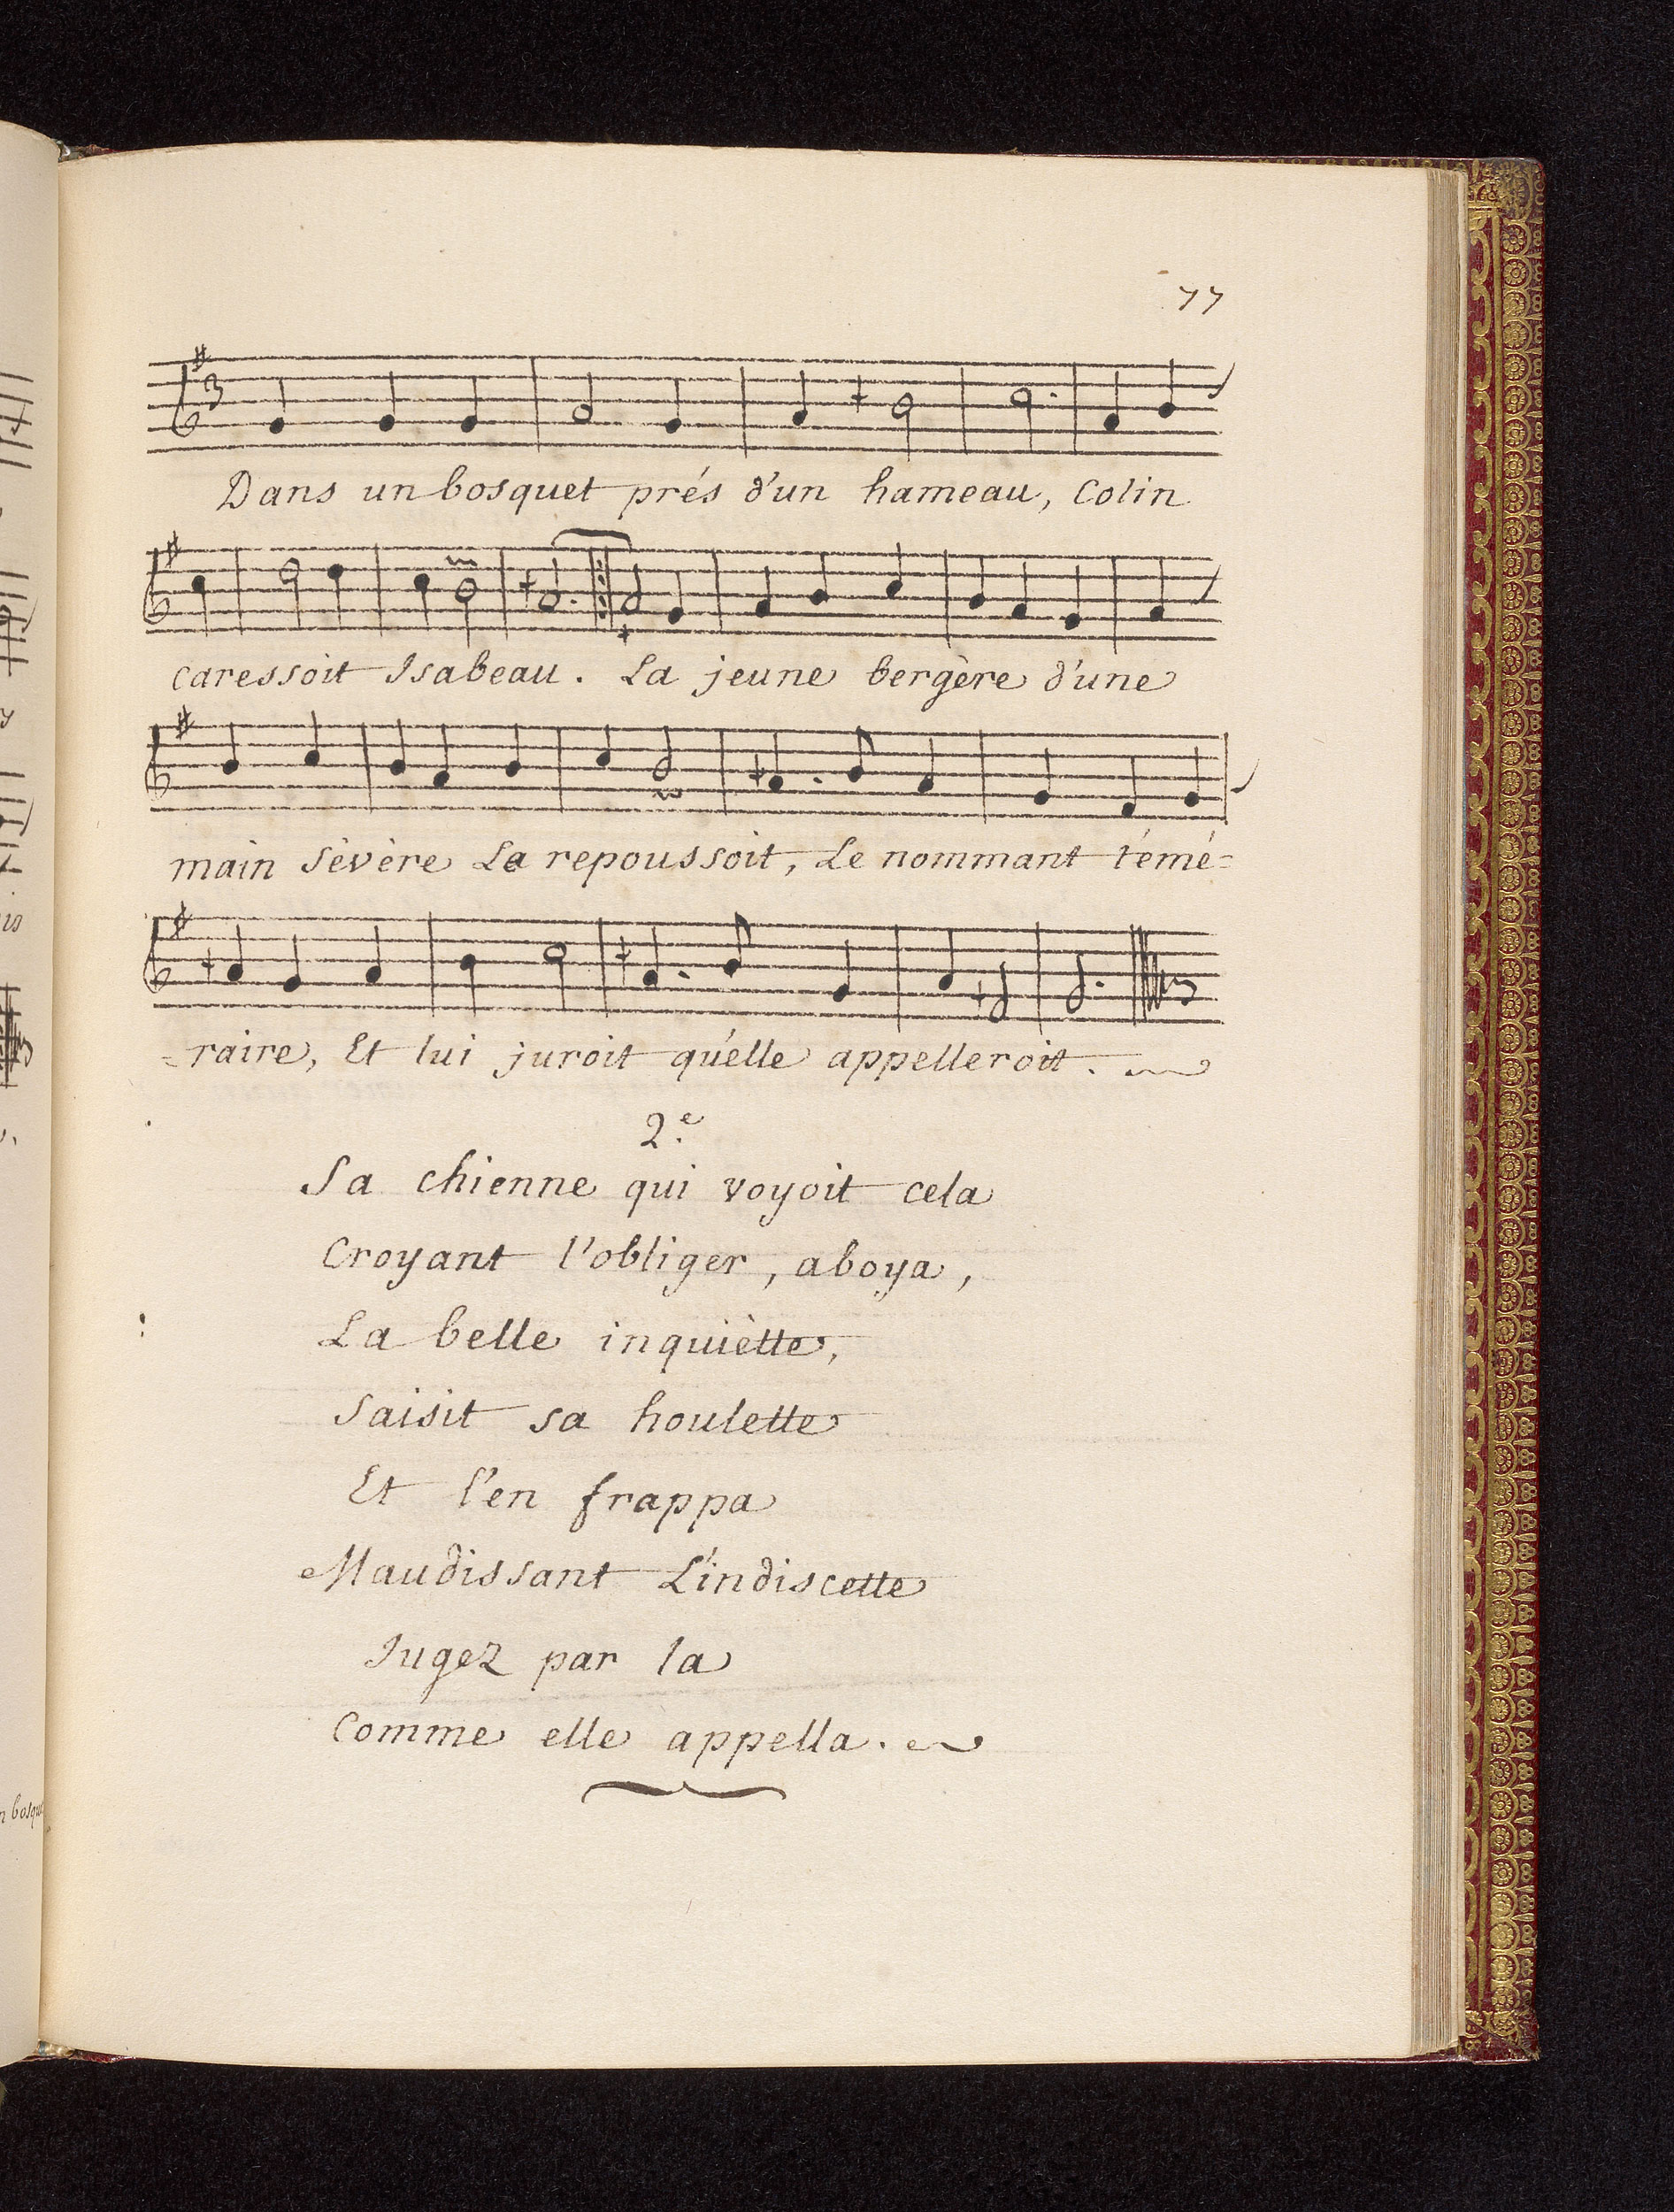 77
Dans un bosquet prés d'un hameau, Colin
caressoit Isabeau. La jeune bergère d'une
main sévère Le repoussoit, Le nommant témé=
=raire, Et lui juroit qu'elle appelleroit.
2.e
Sa chienne qui voyoit cela
Croyant l'obliger, aboya,
La belle inquiètte,
Saisit sa houlette
Et l'en frappa
Maudissant L'indiscette
Jugez par la
Comme elle appella.
n bosque